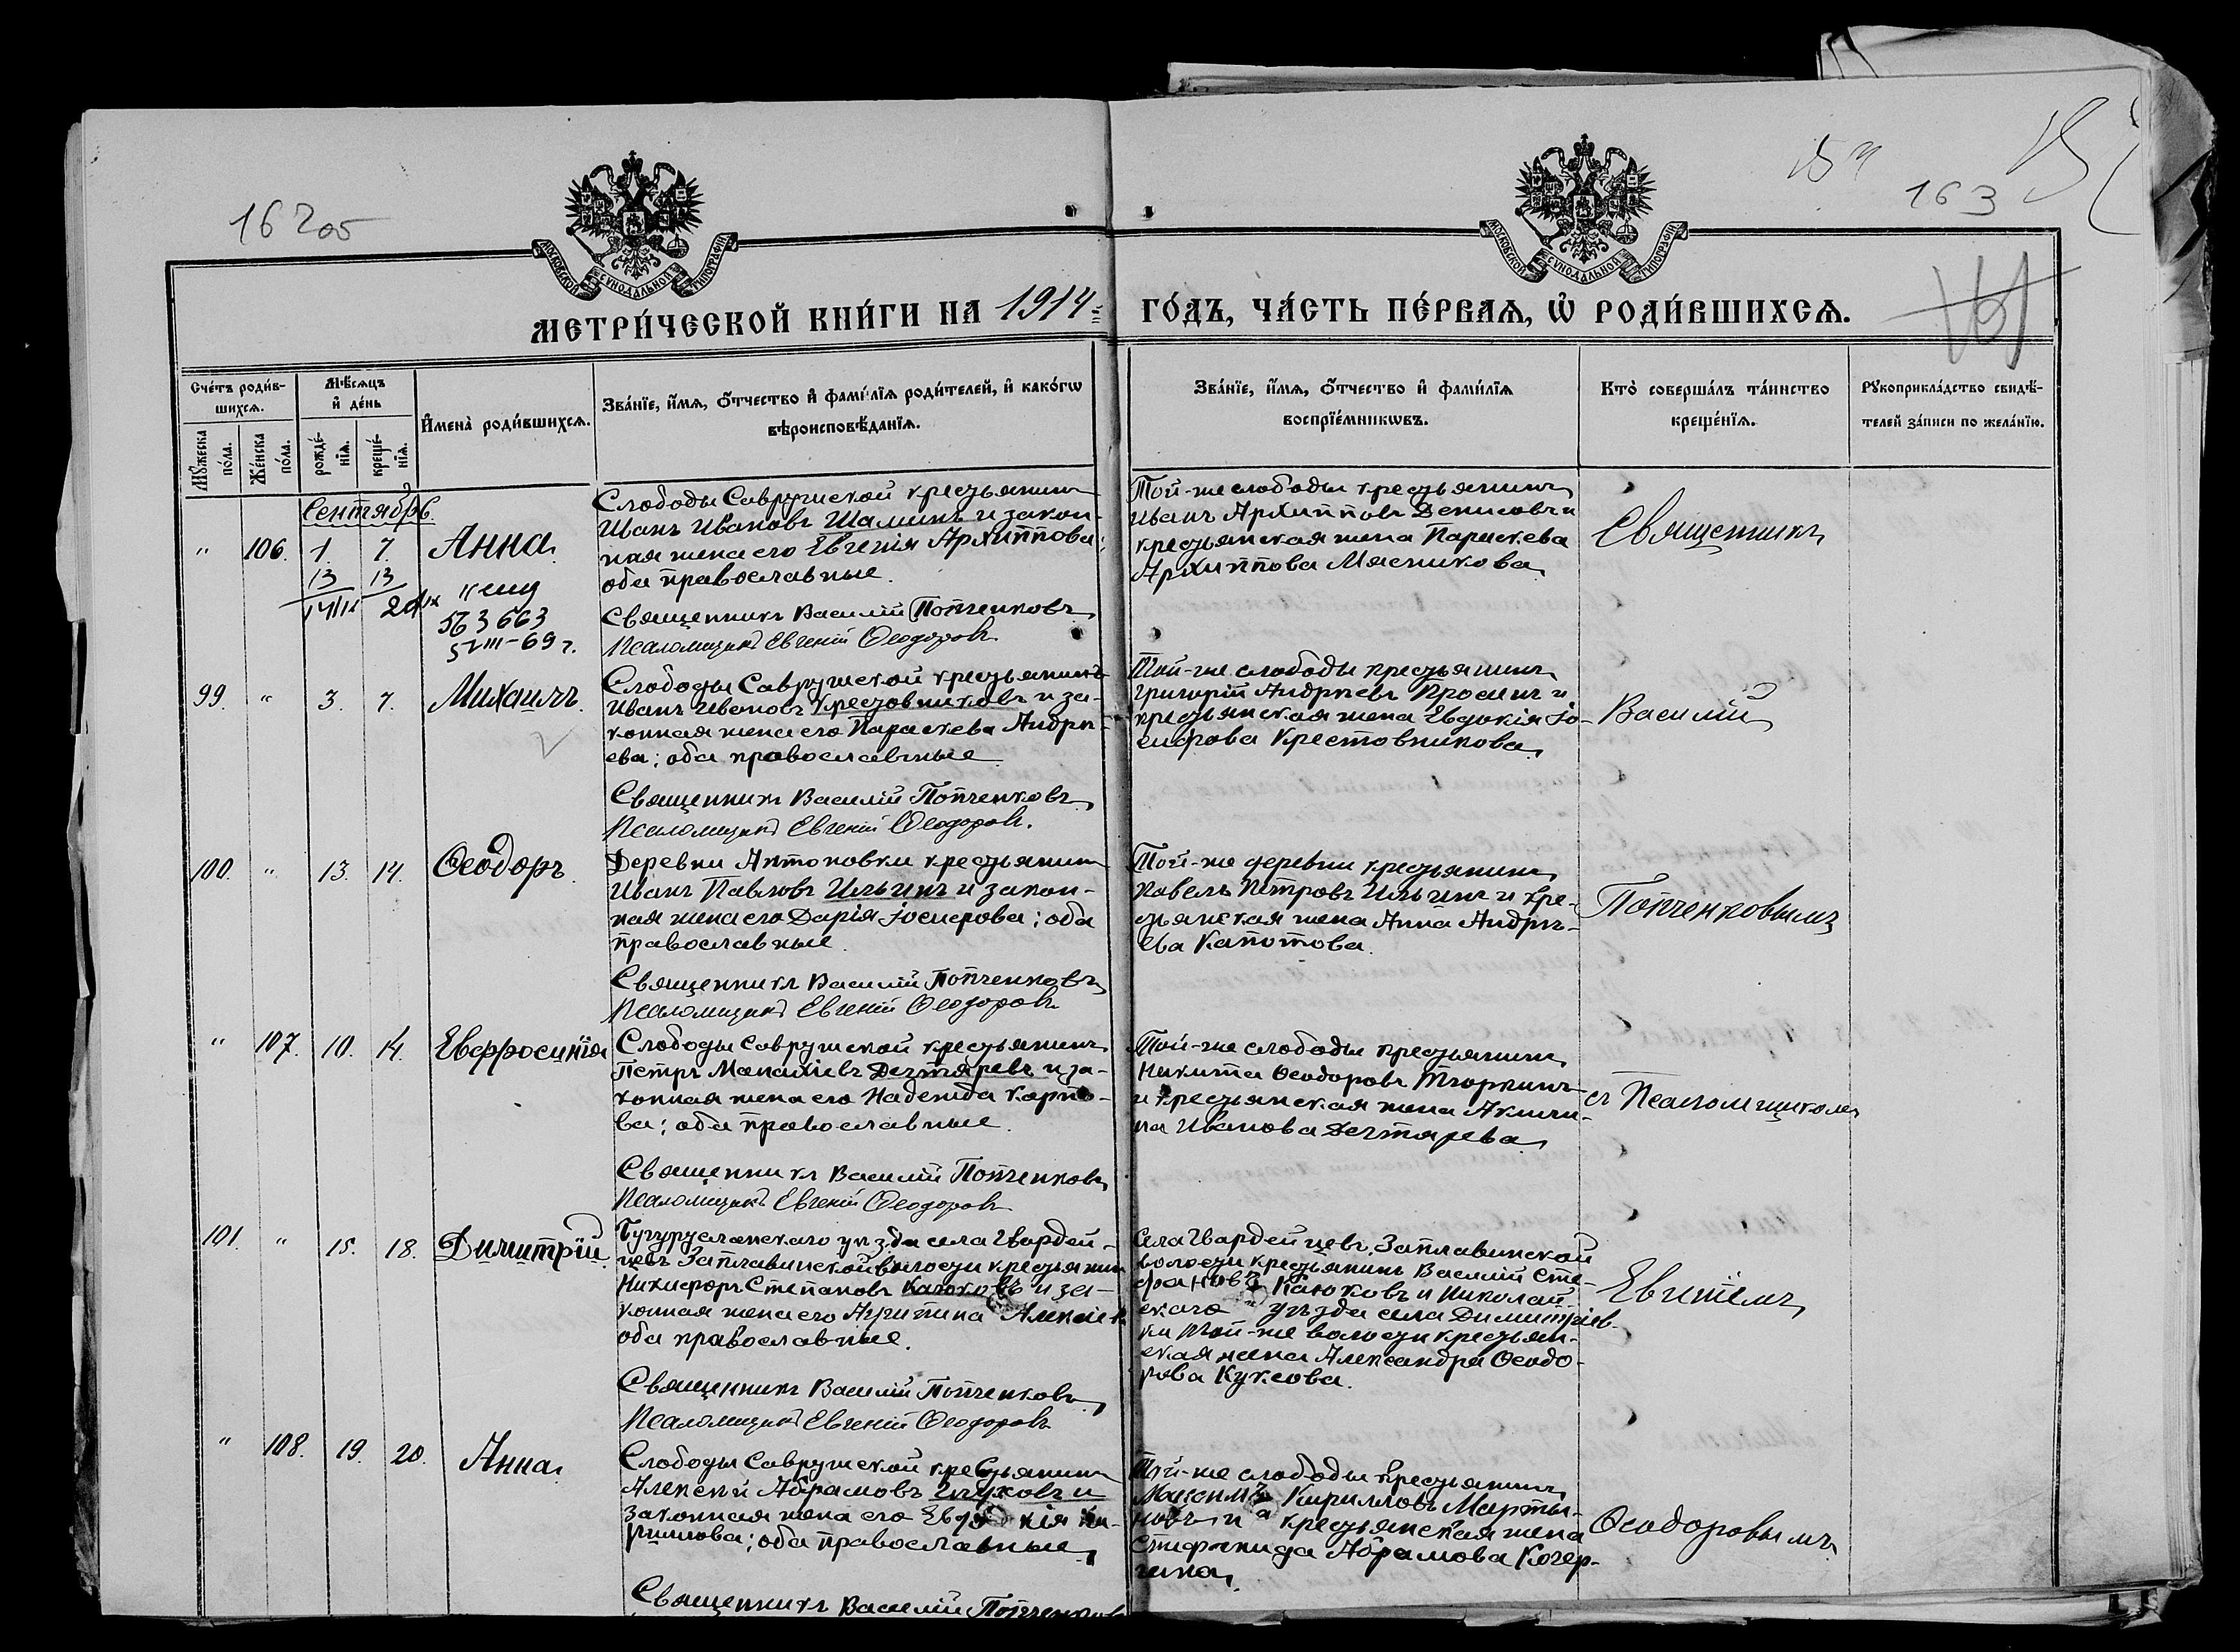 16 205
154
163
161
МОСКОВСКОЙ СѴНОДАЛЬНОЙ ТИПОГРАФІИ
МОСКОВСКОЙ СѴНОДАЛЬНОЙ ТИПОГРАФІИ
МЕТРИ́ЧЕСКОЙ КНИ́ГИ НА 1914 ГО́ДЪ, ЧА́СТЬ ПЕ́РВАЯ, Ѡ РОДИ́ВШИХСЯ.
Сче́тъ роди́в-
шихся.
Мѣ́сяцъ
и де́нь
Мꙋ́жеска
по́ла.
Же́нска
по́ла.
рожде́-
нїя.
креще́-
нїя.
И҆мена̀ роди́вшихся.
Зва́нїе, и҆́мя, ѻ҆́тчество и҆ фами́лїя роди́телей, и҆ како́гѡ
вѣроисповѣ́данїя.
Зва́нїе, и҆́мя, ѻ҆́тчество и҆ фами́лїя
воспрїе́мникѡвъ.
Кто̀ соверша́лъ та́инство
креще́нїя.
Рꙋкоприкла́дство свидѣ́-
телей за́писи по жела́нїю.
Сентябрь.
" 106. 1. 7. Анна.
13 13
14/IX 20/IX
563663
5 VIII-69 г.
Слободы Саврушской крестьянинъ
Иванъ Ивановъ Шаминъ и закон-
ная жена его Евгенія Архиппова;
оба православные.
Священникъ Василій Попченковъ
Псаломщикъ Евгеній Ѳеодоровъ
Той-же слободы крестьянинъ
Иванъ Архипповъ Денисовъ и
крестьянская жена Параскева
Архиппова Мясникова
Священникъ
99. " 3. 7. Михаилъ.
Слободы Саврушской крестьянинъ
Иванъ Ивановъ Крестовниковъ и за-
конная жена его Параскева Андре-
ева; оба православные
Священникъ Василій Попченковъ
Псаломщикъ Евгеній Ѳеодоровъ.
Той-же слободы крестьянинъ
Григорій Андреевъ Просинъ и
крестьянская жена Евдокія Іо-
сифова Крестовникова
Василій
100. " 13. 14. Ѳеодоръ.
Деревни Антоновки крестьянинъ
Иванъ Павловъ Ильинъ и закон-
ная жена его Дарія Іосифова; оба
православные.
Священникъ Василій Попченковъ
Псаломщикъ Евгеній Ѳеодоровъ
Той-же деревни крестьянинъ
Павелъ Петровъ Ильинъ и кре-
стьянская жена Анна Андре-
ева Капотова.
Попченковымъ
" 107. 10. 14. Евфросинія
Слободы Саврушской крестьянинъ
Петръ Малахіевъ Дегтяревъ и за-
конная жена его Надежда Карпо-
ва; оба православные.
Священникъ Василій Попченковъ
Псаломщикъ Евгеній Ѳеодоровъ
Той-же слободы крестьянинъ
Никита Ѳеодоровъ Тюркинъ
и крестьянская жена Акили-
на Иванова Дегтярева
съ Псаломщикомъ
101. " 15. 18. Димитрій.
Бугурусланскаго уезда села Гвардей-
цевъ Заплавинской волости крестьянинъ
Никифоръ Степановъ Каюковъ и за-
конная жена его Агрипина Алексіева
оба православные.
Священникъ Василій Попченковъ
Псаломщикъ Евгеній Ѳеодоровъ
Села Гвардейцевъ, Заплавинской
волости крестьянинъ Василій Сте-
фановъ Каюковъ и Николай-
скаго уезда села Димитріев-
ки той-же волости крестьян-
ская жена Александра Ѳеодо-
рова Куксова.
Евгеніемъ
" 108. 19. 20. Анна.
Слободы Саврушской крестьянинъ
Алексей Абрамовъ Глуховъ и
законная жена его Евдокія Ки-
риллова; оба православные
Священникъ Василій Попченковъ
Той-же слободы крестьянинъ
Максимъ Кирилловъ Марты-
новъ и крестьянская жена
Стефанида Абрамова Кочер-
гина.
Ѳеодоровымъ